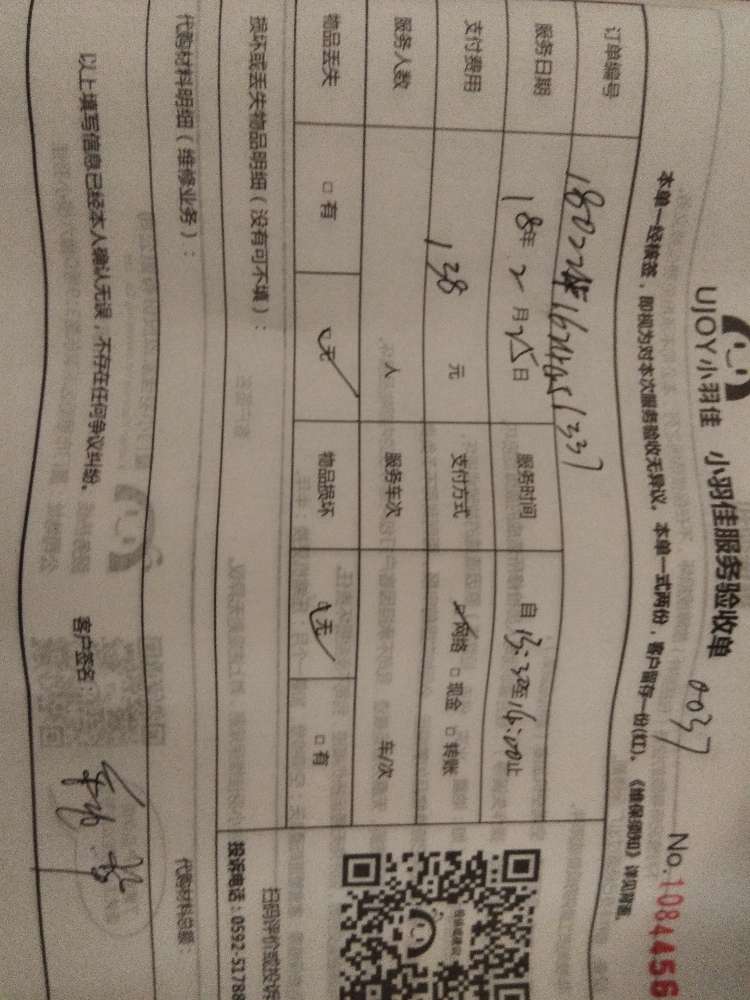 UJOY小羽佳 小羽佳服务验收单
0037 No.1084456
本单一经核签，即视为对本次服务验收无异议。本单一式两份，客户留存一份(红)。《维保须知》详见背面。
订单编号
服务日期 18年 2月25日 服务时间 自 15:30至16:00止
支付费用 138 元 支付方式 网络 □现金 □转账
服务人数 人 服务车次 车/次
物品丢失 □有 无 物品损坏 无 □有
损坏或丢失物品明细（没有可不填）：
扫码评价或投诉
投诉电话：0592-51788
代购材料明细（维修业务）： 代购材料总额：
以上填写信息已经本人确认无误，不存在任何争议纠纷。 客户签名：